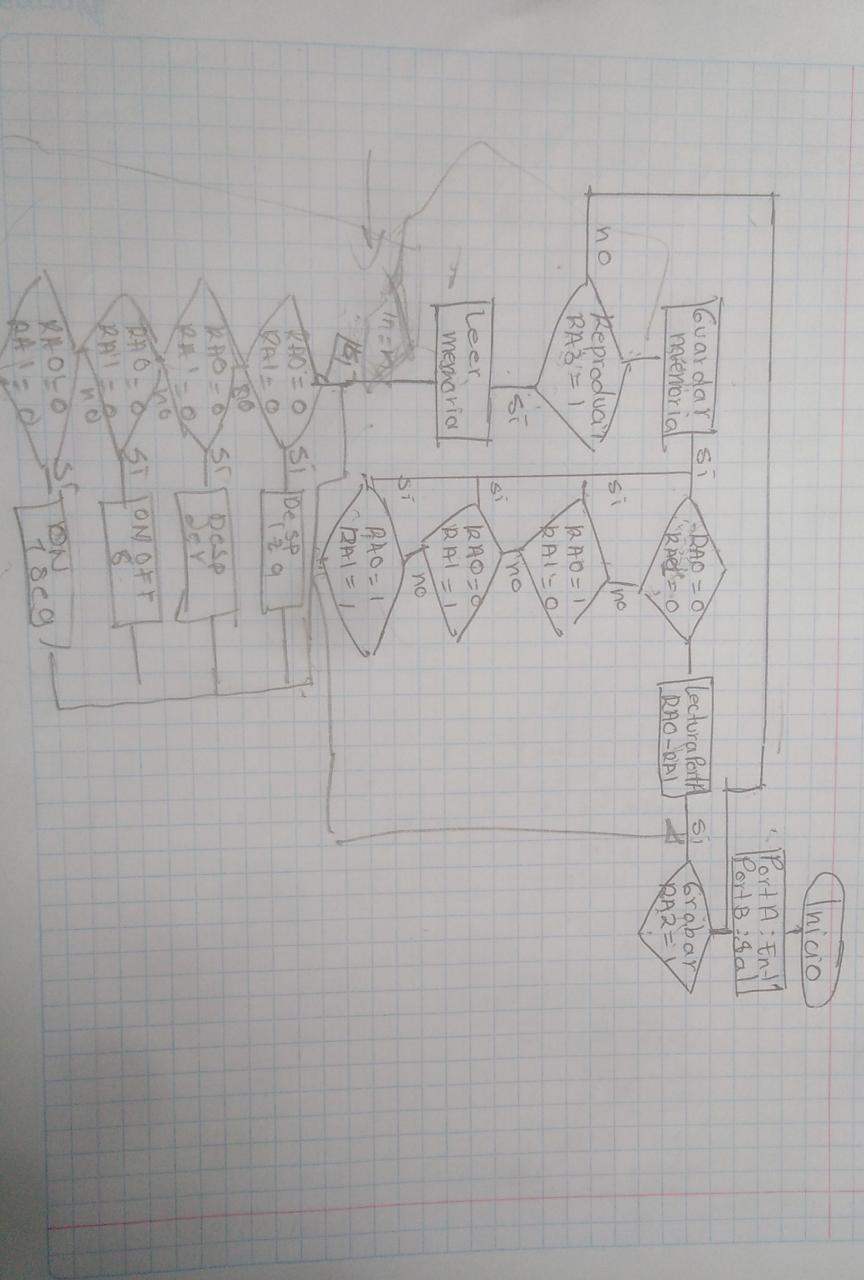 Inicio
PortA : Ent
PortB : Sal
Grabar
RA2 = 1
si
Lectura PortA
RA0-RA1
RA0 = 0
RA1 = 0
si
Guardar
memoria
no
RA0 = 1
RA1 = 0
si
no
RA0 = 0
RA1 = 1
si
no
RA0 = 1
RA1 = 1
si
Reproducir
RA3 = 1
no
si
Leer
memoria
RA0 = 0
RA1 = 0
si
Desp
izq
no
RA0 = 0
RA1 = 0
si
Desp
der
no
RA0 = 0
RA1 = 0
si
ON OFF
8
no
RA0 = 0
RA1 = 0
si
ON
1 seg